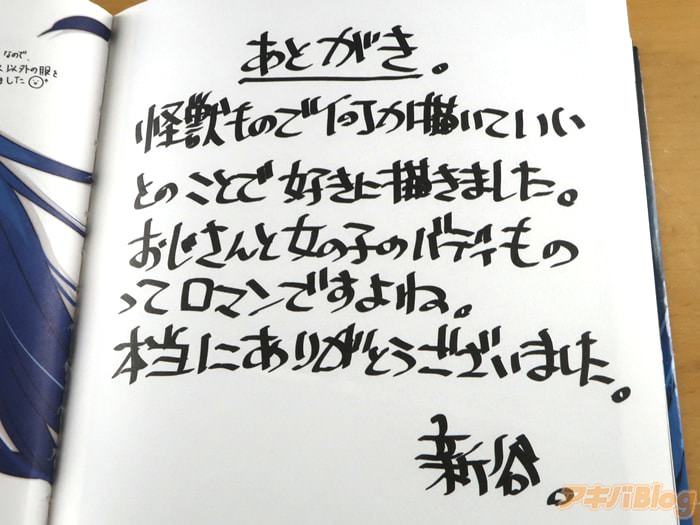 なので、
以外の服を
ました
あとがき。
怪獣もので何か描いていい
とのことで好きに描きました。
おじさんと女の子のバディもの
ってロマンですよね。
本当にありがとうございました。
新谷。
アキバBlog